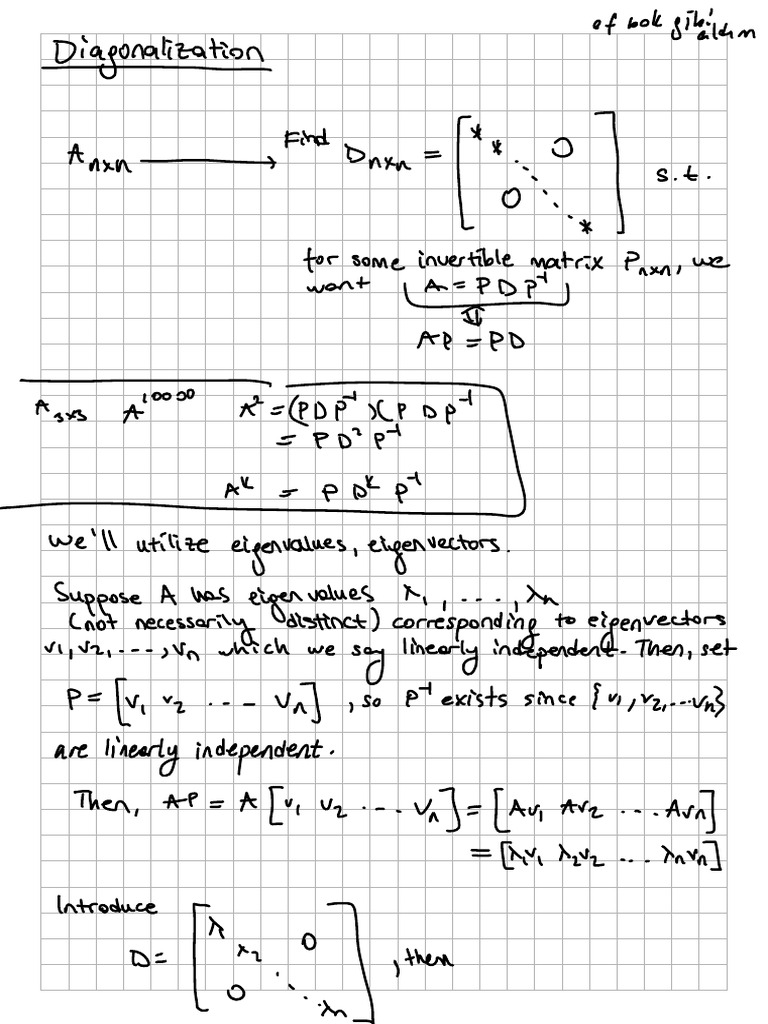 of bok gibi
aldım
Diagonalization
A_{n×n} ⟶ Find D_{n×n} = [* * ⋱ * 0 0] s.t.
for some invertible matrix P_{n×n}, we
want A = P D P^{-1}
⇕
AP = PD
A_{3×3} A^{10000} A² = (P D P^{-1})(P D P^{-1})
= P D² P^{-1}
A^k = P D^k P^{-1}
we'll utilize eigenvalues, eigenvectors.
Suppose A has eigenvalues λ₁, ...., λn
(not necessarily distinct) corresponding to eigenvectors
v₁, v₂, ..., vn which we say linearly independent. Then, set
P = [v₁ v₂ ... vn], so P^{-1} exists since {v₁, v₂, ... vn}
are linearly independent.
Then, AP = A [v₁ v₂ ... vn] = [Av₁ Av₂ ... Avn]
= [λ₁v₁ λ₂v₂ ... λnvn]
Introduce
D = [λ λ₂ ⋱ λn 0 0], then